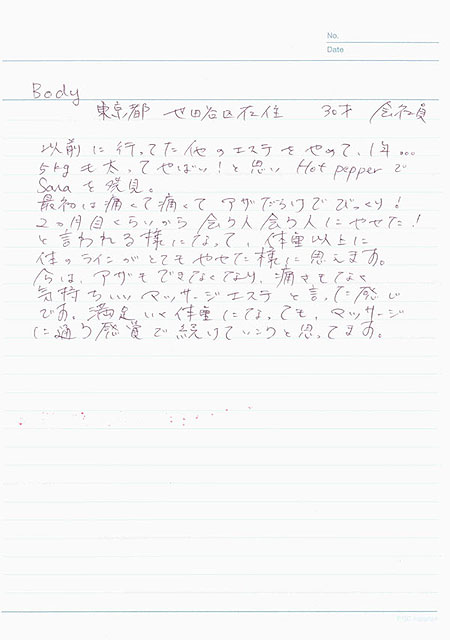 No.
Date
Body
東京都 世田谷区在住 30才 会社員
以前に行ってた他のエステをやめて、1年…
5kgも太ってやばい!と思い Hot pepperで
Saraを発見。
最初は痛くて痛くて アザだらけでびっくり!
2ヵ月目くらいから 会う人会う人にやせた!
と言われる様になって、体重以上に
体のラインがとてもやせた様に思えます。
今は、アザもできなくなり、痛さもなく
気持ちいいマッサージエステと言った感じ
です。満足いく体重になっても、マッサージ
に通う感覚で続けていこうと思ってます。